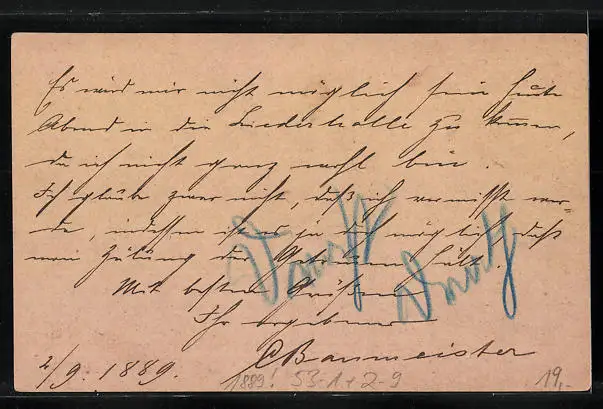 Es wird mir nicht möglich sein heute
Abend in die Liederhalle zu kommen,
da ich nicht ganz wohl bin.
Ich glaube zwar nicht, daß ich vermisst wer-
de, indessen ist es ja möglich, daß
mein
Mit besten Grüßen
Ihr ergebener
CBaumeister
2/9. 1889.
1889! 53-1+2-9
19,-